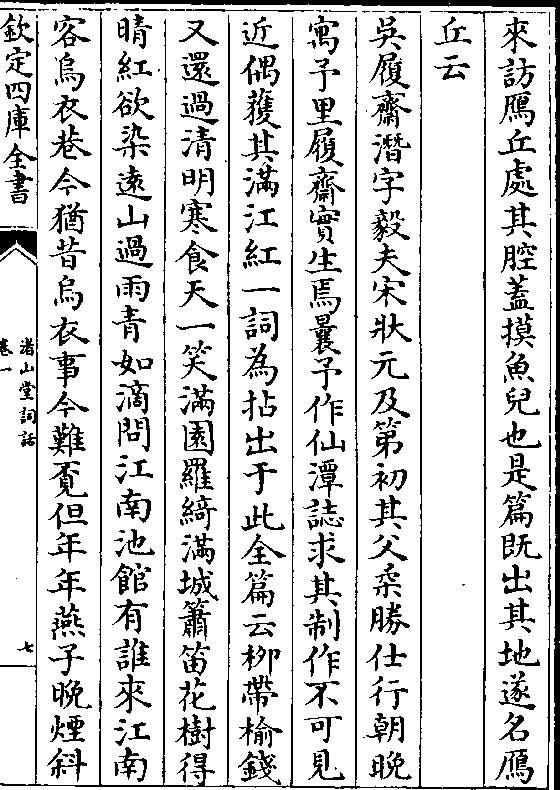 來訪鴈丘處其腔蓋摸魚兒也是篇既出其地遂名鴈
丘云
吳履齋潛字毅夫宋狀元及第初其父柔勝仕行朝晚
寓予里履齋實生焉曩予作仙潭誌求其制作不可見
近偶獲其滿江紅一詞為拈出于此全篇云柳帶榆錢
又還過清明寒食天一笑滿園羅綺滿城簫笛花樹得
晴紅欲染遠山過雨青如滴問江南池館有誰來江南
客烏衣巷今猶昔烏衣事今難覔但年年燕子晚煙斜
欽定四庫全書
渚山堂詞話
卷一
七